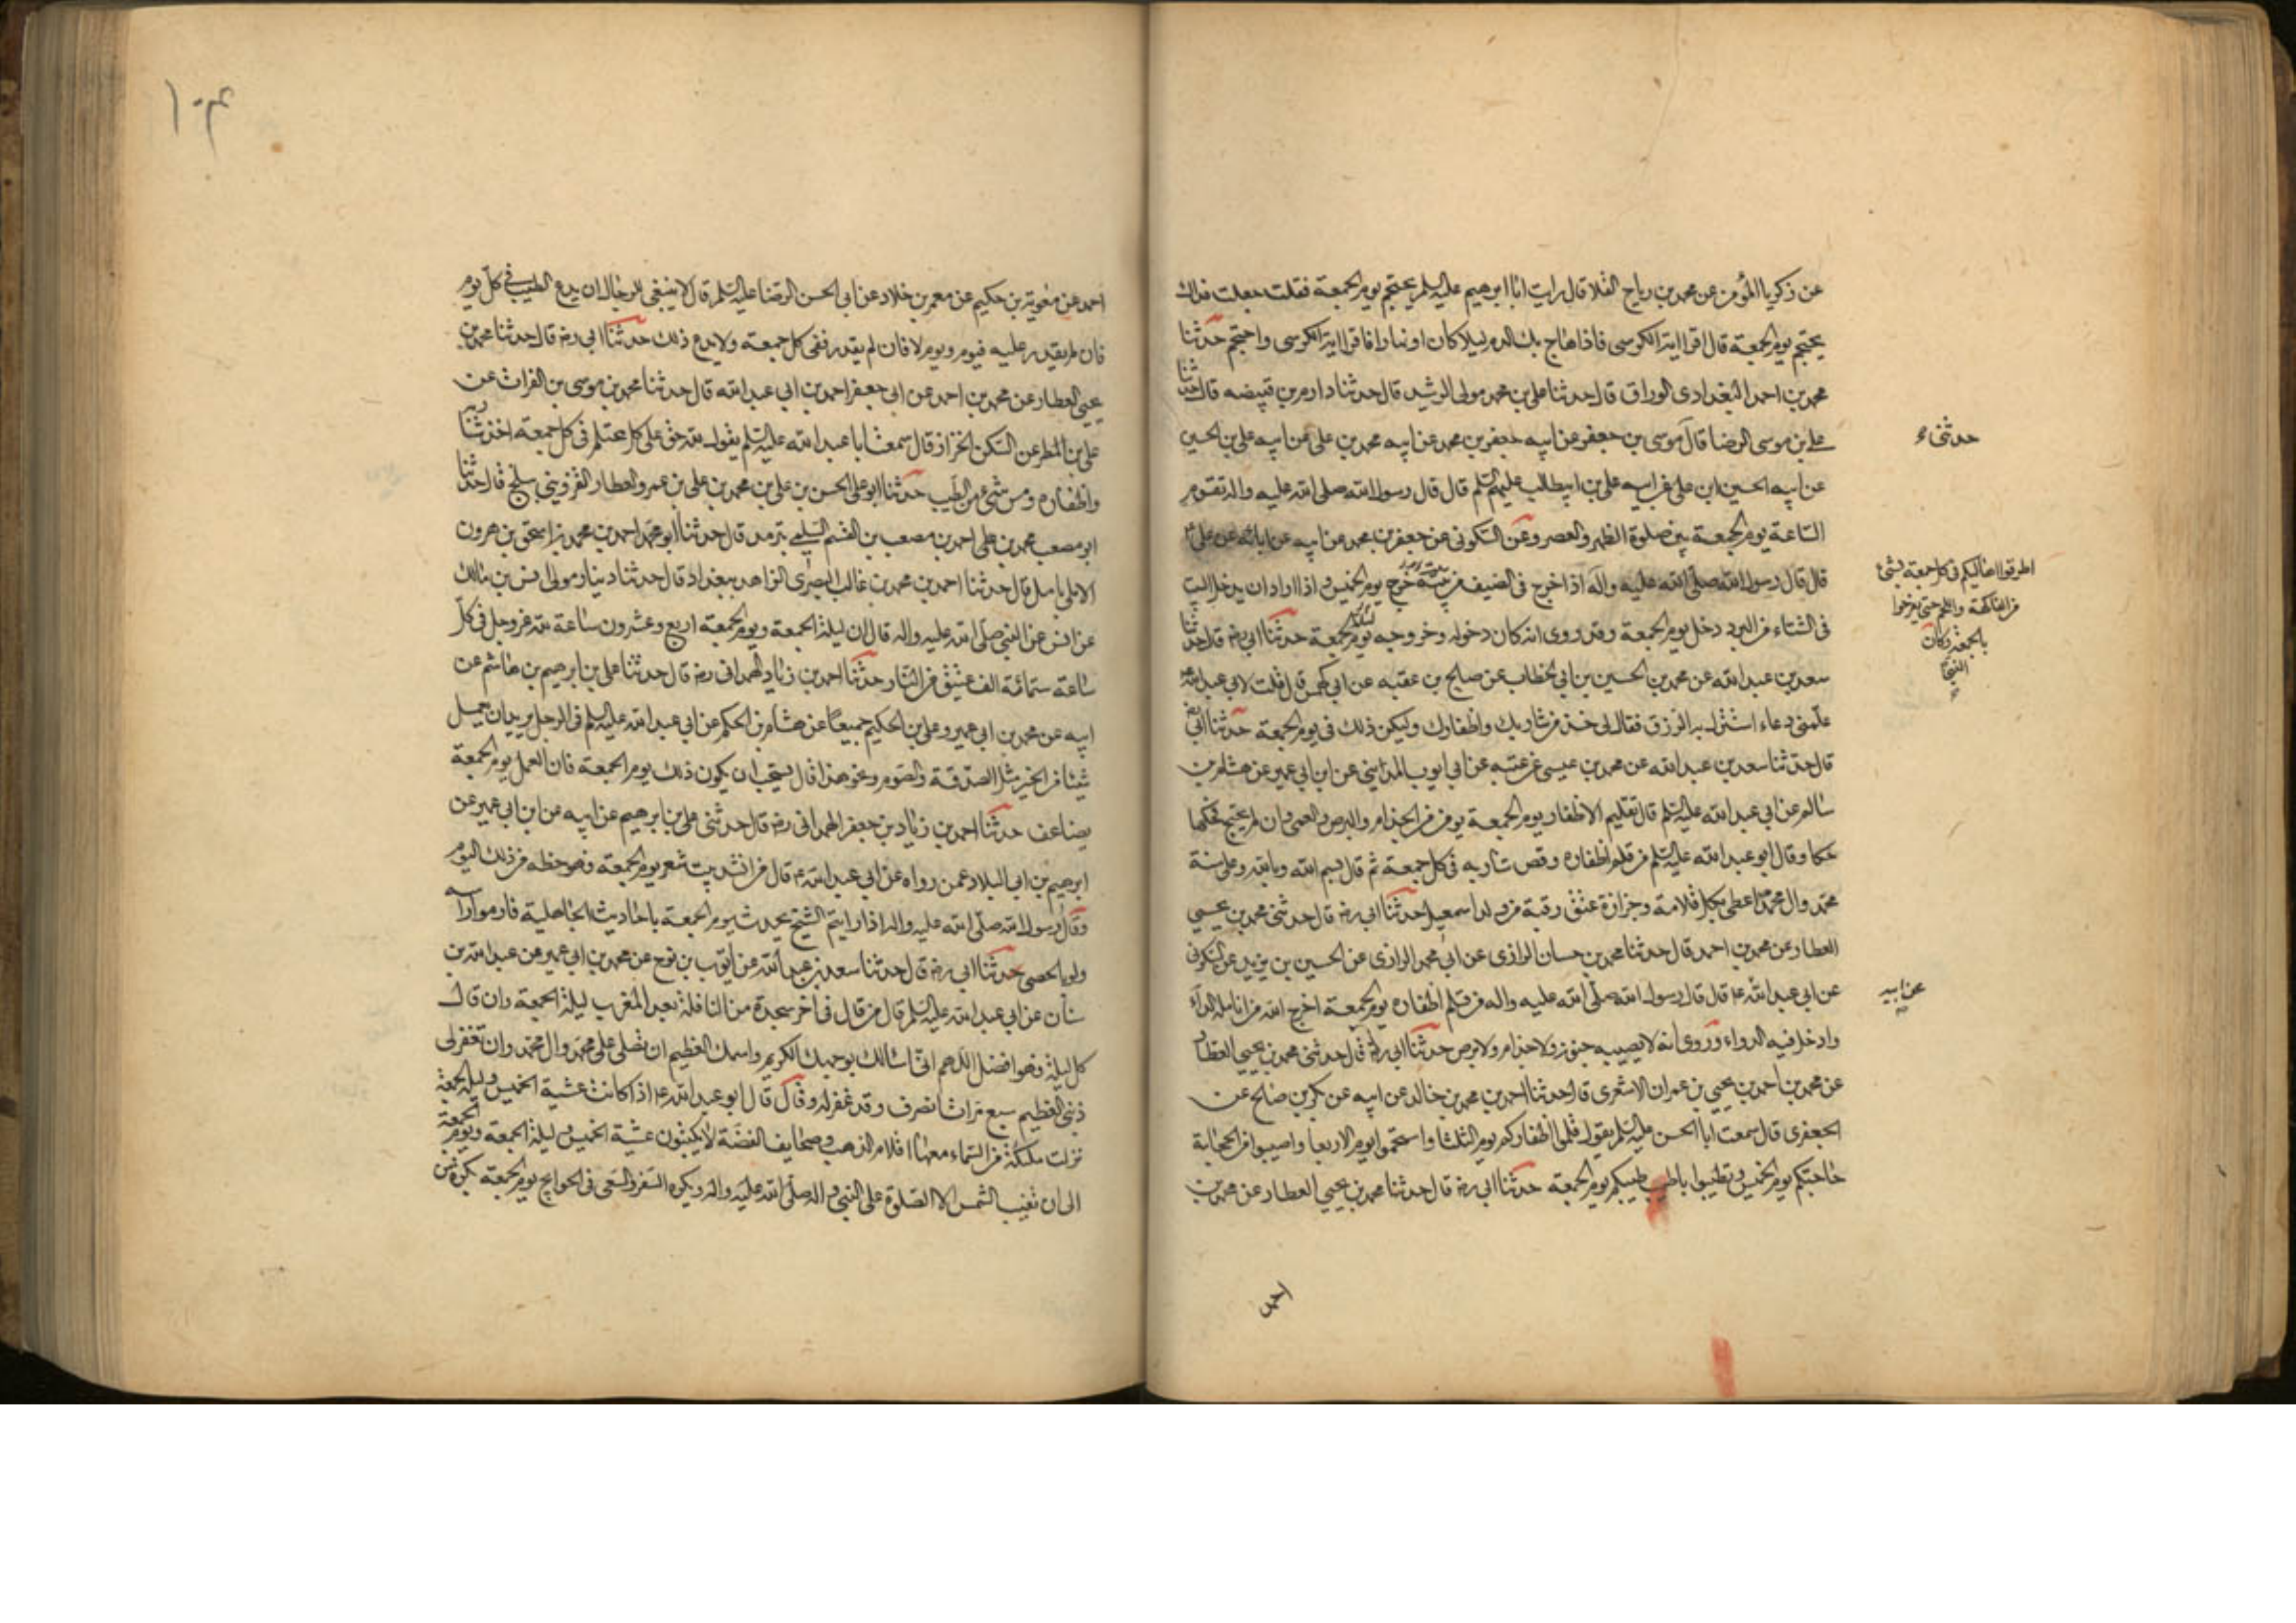 عن زكريا المؤمن عن محمد بن رباح القلا قال رايت ابا ابرهيم عليه السلم يحتجم يوم الجمعة فقلت جعلت فداك
يحتجم يوم الجمعة قال اقرا اية الكرسى فاذا هاج بك الدم ليلا كان او نهارا فاقرا اية الكرسى واحتجم حدثنا
محمد بن احمد البغدادى الوراق قال حدثنا على بن محمد مولى الرشيد قال حدثنا دارم بن قبيضه قال حدثنا
على بن موسى الرضا قال موسى بن جعفر عن ابيه جعفر بن محمد عن ابيه محمد بن على عن ابيه على بن الحسين
حدثنى
عن ابيه الحسين ابن على عن ابيه على بن ابيطالب عليهم السلم قال قال رسول الله صلى الله عليه واله تقوم
الساعة يوم الجمعة بين صلوة الظهر والعصر وعن السكونى عن جعفر بن محمد عن ابيه عن ابائه عن على ع
اطرقوا اهاليكم فى كل جمعة بشئ
من الفاكهة واللحم حتى يفرحوا
بالجمعة وكان
النبى
قال قال رسول الله صلى الله عليه واله اذا خرج فى الصيف من بيته خرج يوم الخميس واذا اراد ان يدخل البيت
فى الشتاء من البرد دخل يوم الجمعة وقد روى انه كان دخوله وخروجه يوم الجمعة حدثنا ابى ره قال حدثنا
سعد بن عبد الله عن محمد بن الحسين بن ابى الخطاب عن صالح بن عقبه عن ابى كهمس قال قلت لابى عبد الله
علمنى دعاء استنزل به الرزق فقال لى خذ من شاربك واظفارك وليكن ذلك فى يوم الجمعة حدثنا ابى
قال حدثنا سعد بن عبد الله عن محمد بن عيسى عن ابى ايوب المداينى عن ابن ابى عمير عن هشام بن
سالم عن ابى عبد الله عليه السلم قال تقليم الاظفار يوم الجمعة يومن من الجذام والبرص والعمى وان لم يحتج فحكها
حكا وقال ابو عبد الله عليه السلم من قلم اظفاره وقص شاربه فى كل جمعة ثم قال بسم الله وبالله وعلى سنة
محمد وال محمد اعطى بكل قلامة وجزازة عتق رقبة من ولد اسمعيل حدثنا ابى ره قال حدثنى محمد بن يحيى
العطار عن محمد بن احمد قال حدثنا محمد بن حسان الرازى عن ابى محمد الرازى عن الحسين بن يزيد عن السكونى
عن ابى عبد الله ع قال قال رسول الله صلى الله عليه واله من قلم اظفاره يوم الجمعة اخرج الله من انامله الداء
عن ابيه
وادخل فيه الدواء وروى انه لا يصيبه جنون ولا جذام ولا برص حدثنا ابى ره قال حدثنى محمد بن يحيى العطار
عن محمد بن احمد بن يحيى بن عمران الاشعرى قال حدثنا احمد بن محمد بن خالد عن ابيه عن بكر بن صالح عن
الجعفرى قال سمعت ابا الحسن عليه السلم يقول قلموا اظفاركم يوم الثلثا واستحموا يوم الاربعا واصيبوا من الحجامة
حاجتكم يوم الخميس وتطيبوا باطيب طيبكم يوم الجمعة حدثنا ابى ره قال حدثنا محمد بن يحيى العطار عن محمد بن
احمد
١٠٤
احمد عن معوية بن حكيم عن معمر بن خلاد عن ابى الحسن الرضا عليه السلم قال لا ينبغى للرجال ان يدع الطيب فى كل يوم
فان لم يقدر عليه فيوم ويوم لا فان لم يقدر ففى كل جمعة ولا يدع ذلك حدثنا ابى ره قال حدثنا محمد بن
يحيى العطار عن محمد بن احمد عن ابى جعفر احمد بن ابى عبد الله قال حدثنا محمد بن موسى بن الفرات عن
على بن المطر عن السكن الخزاز قال سمعت ابا عبد الله عليه السلم يقول لله حق على كل محتلم فى كل جمعة اخذ شاربه
واظفاره ومس شئ من الطيب حدثنا ابو على الحسن بن على بن محمد بن على بن عمرو العطار القزوينى ببلخ قال حدثنا
ابو مصعب محمد بن على احمد بن مصعب بن القسم السلمى بترمد قال حدثنا ابو محمد احمد بن محمد بن اسحق بن هرون
الاملى بامل قال حدثنا احمد بن محمد بن غالب البصرى الزاهد ببغداد قال حدثنا دينار مولى انس بن مالك
عن انس عن النبى صلى الله عليه واله قال ان ليلة الجمعة ويوم الجمعة اربع وعشرون ساعة لله عز وجل فى كل
ساعة ستمائة الف عتيق من النار حدثنا احمد بن زياد الهمدانى ره قال حدثنا على بن ابرهيم بن هاشم عن
ابيه عن محمد بن ابى عمير وعلى بن الحكيم جميعا عن هشام بن الحكم عن ابى عبد الله عليه السلم فى الرجل يريد ان يعمل
شيئا من الخير مثل الصدقة والصوم ونحو هذا قال يستحب ان يكون ذلك يوم الجمعة فان العمل يوم الجمعة
يضاعف حدثنا احمد بن زياد بن جعفر الهمدانى ره قال حدثنى على بن ابرهيم عن ابيه عن ابن ابى عمير عن
ابرهيم بن ابى البلاد عمن رواه عن ابى عبد الله ع قال من انشد بيت شعر يوم الجمعة فهو حظه من ذلك اليوم
وقال رسول الله صلى الله عليه واله اذا رايتم الشيخ يحدث يوم الجمعة باحاديث الجاهلية فارموا راسه
ولو بالحصى حدثنا ابى ره قال حدثنا سعد بن عبد الله عن ايوب بن نوح عن محمد بن ابى عمير عن عبد الله بن
سنان عن ابى عبد الله عليه السلم قال من قال فى اخر سجدة من النافلة بعد المغرب ليلة الجمعة وان قال
كل ليلة فهو افضل اللهم انى اسالك بوجهك الكريم واسمك العظيم ان تصلى على محمد وال محمد وان تغفر لى
ذنبى العظيم سبع مرات انصرف وقد غفر له وقال قال ابو عبد الله ع اذا كانت عشية الخميس وليلة الجمعة
نزلت ملئكة من السماء معها اقلام الذهب وصحايف الفضة لا يكتبون عشية الخميس وليلة الجمعة ويوم الجمعة
الى ان تغيب الشمس الا الصلوة على النبى واله صلى الله عليه واله ويكره السفر والسعى فى الحوايج يوم الجمعة بكرة من